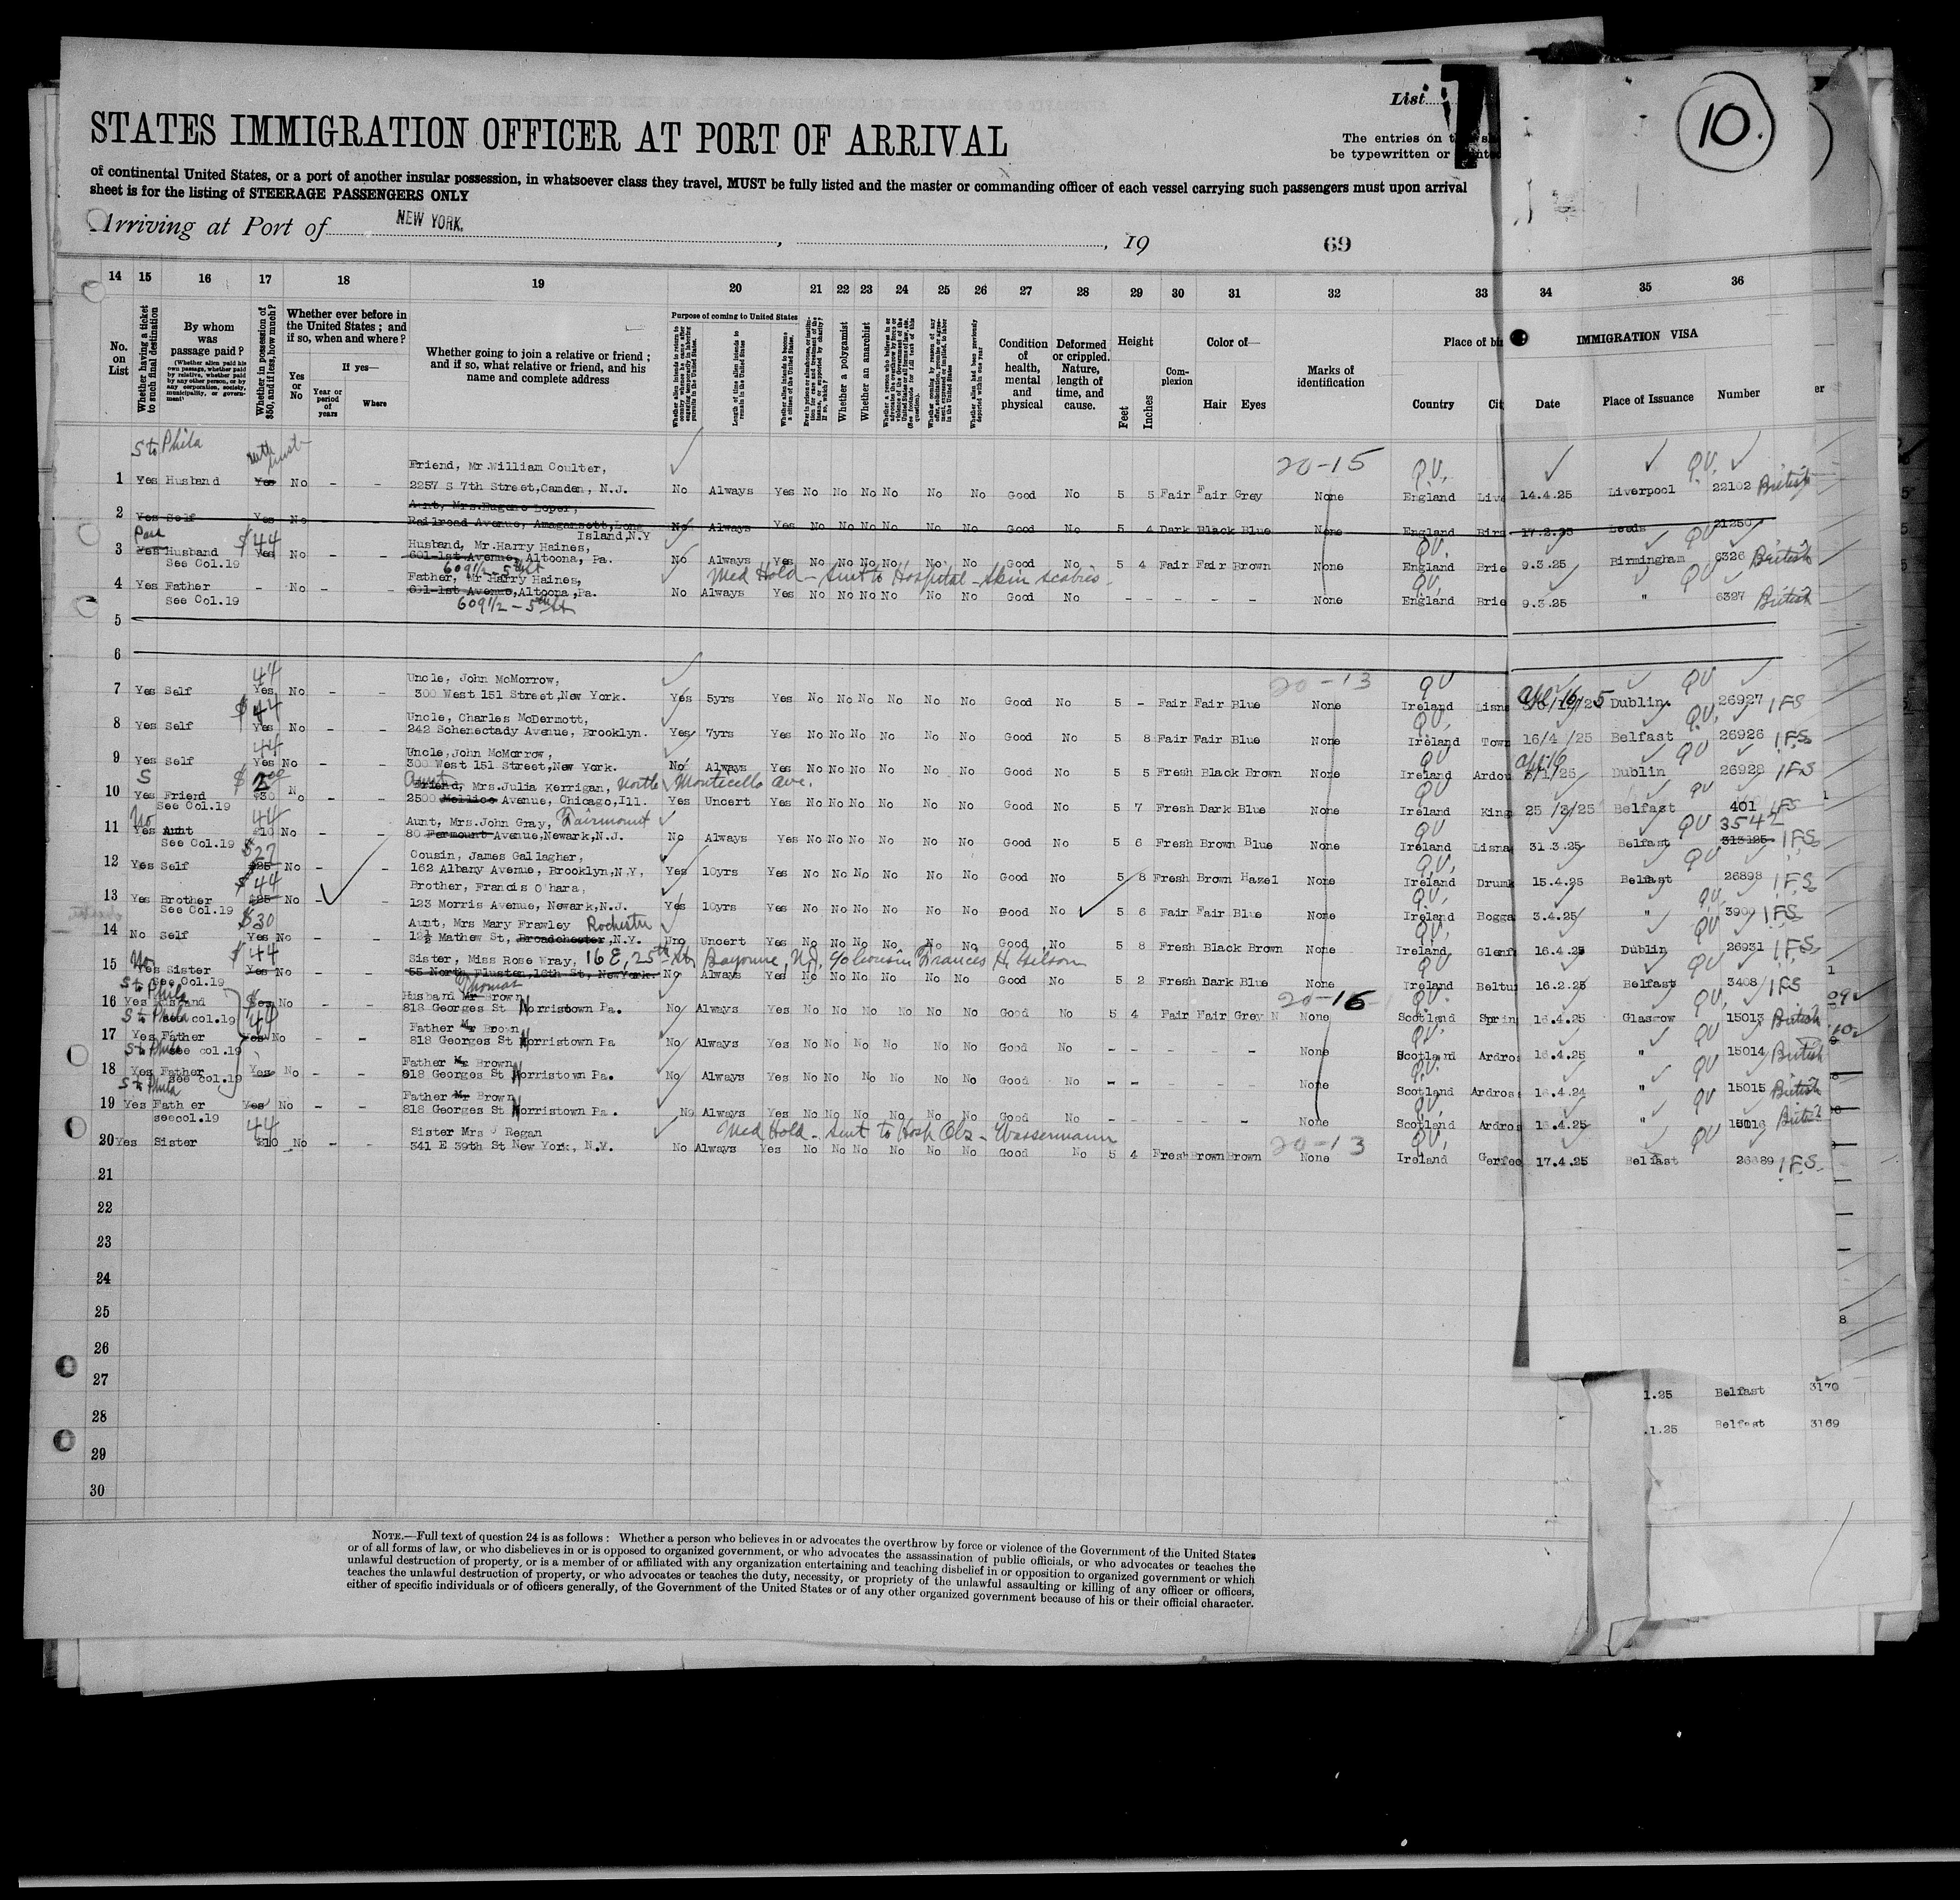 10.
List
STATES IMMIGRATION OFFICER AT PORT OF ARRIVAL
The entries on
be typewritten or
of continental United States, or a port of another insular possession, in whatsoever class they travel, MUST be fully listed and the master or commanding officer of each vessel carrying such passengers must upon arrival
sheet is for the listing of STEERAGE PASSENGERS ONLY
Arriving at Port of NEW YORK. , , 19 69
14 15 16 17 18 19 20 21 22 23 24 25 26 27 28 29 30 31 32 33 34 35 36
No. on List
Whether having a ticket to such final destination
By whom was passage paid?
(Whether alien paid his own passage, whether paid by relative, whether paid by any other person, or by any corporation, society, municipality, or government)
Whether in possession of $50, and if less, how much?
Whether ever before in the United States; and if so, when and where?
Yes or No
If yes—
Year or period of years
Where
Whether going to join a relative or friend; and if so, what relative or friend, and his name and complete address
Purpose of coming to United States
Length of time alien intends to remain in the United States
Whether alien intends to become a citizen of the United States.
Whether a polygamist
Whether an anarchist
Condition of health, mental and physical
Deformed or crippled. Nature, length of time, and cause.
Height
Feet
Inches
Complexion
Color of—
Hair Eyes
Marks of identification
Place of
Country
IMMIGRATION VISA
Date Place of Issuance Number
St Phila
Friend, Mr.William Coulter,
20-15 QV. QV.
1 Yes Husband Yes No - - 2257 S 7th Street,Camden, N.J. No Always Yes No No No No No No Good No 5 5 Fair Fair Grey None England 14.4.25 Liverpool 22102 British
Aunt, Mrs.Eugene Loper,
2 Yes Self Yes No Railroad Avenue, Amagansett,Long No Always Yes No No No No No No Good No 5 4 Dark Black Blue None England 17.2.25 Leeds 21250
Island,N.Y
$44 Husband, Mr.Harry Haines, QV. QV
3 Yes Husband Yes No - - 601-1st Avenue, Altoona, Pa. No Always Yes No No No No No No Good No 5 4 Fair Fair Brown None England Brie 9.3.25 Birmingham 6326 British
See Col.19 609 1/2 - 5th St Med Hold - Sent to Hospital - Skin scabies - QV
Father, Mr Harry Haines,
4 Yes Father - No - - 601-1st Avenue,Altoona,Pa. No Always Yes No No No No No No Good No - - - - - None England Brie 9.3.25 " 6327 British
See Col.19 609 1/2 - 5th St
5
6
44 Uncle, John McMorrow, 20-13 QV QV
7 Yes Self Yes No - - 300 West 151 Street,New York. Yes 5yrs Yes No No No No No No Good No 5 - Fair Fair Blue None Ireland Lisna Dublin. 26927 IFS
$44 Uncle, Charles McDermott, QV. QV.
8 Yes Self Yes No - - 242 Schenectady Avenue, Brooklyn. Yes 7yrs Yes No No No No No No Good No 5 8 Fair Fair Blue None Ireland Town 16/4 /25 Belfast 26926 IFS
44 Uncle,John McMorrow, QV QV
9 Yes Self Yes No - - 300 West 151 Street,New York. No Always Yes No No No No No No Good No 5 5 Fresh Black Brown None Ireland Ardou Dublin 26928 IFS
S $2 Aunt Friend, Mrs.Julia Kerrigan, North Monticello Ave. QV QV
10 Yes Friend $30 No 2500 Avenue, Chicago,Ill. Yes Uncert Yes No No No No No No Good No 5 7 Fresh Dark Blue None Ireland King 25 /3/25 Belfast 401 IFS
See Col.19
No 44 Aunt, Mrs.John Gray, Fairmount QV QV 3542
11 Yes Aunt $10 No - - 80 Avenue,Newark,N.J. No Always Yes No No No No No No Good No 5 6 Fresh Brown Blue None Ireland Lisna 31.3.25 Belfast 313125 IFS
See Col.19
$27 Cousin, James Gallagher, QV. QV
12 Yes Self $25 No - 162 Albany Avenue, Brooklyn,N.Y, Yes 10yrs Yes No No No No No No Good No 5 8 Fresh Brown Hazel None Ireland Drumk 15.4.25 Belfast 26898 IFS
$44 Brother, Francis O'hara, QV. QV
13 Yes Brother $25 No - - 123 Morris Avenue, Newark,N.J. Yes 10yrs Yes No No No No No No Good No 5 6 Fair Fair Blue None Ireland Bogga 3.4.25 " 3900 IFS
See Col.19
$30 Aunt, Mrs Mary Frawley Rochester QV. QV
14 No Self Yes No - - 12½ Mathew St, Broadchester,N.Y. Unc Uncert Yes No No No No No No Good No 5 8 Fresh Black Brown None Ireland 16.4.25 Dublin 26931 IFS
No $44 Sister, Miss Rose Wray, 16 E, 25th St, Bayonne, NJ, c/o Cousin Frances H. Gilson QV QV
15 Yes Sister Yes No - - 55 North, 16th St, NewYork. No Always Yes No No No No No No Good No 5 2 Fresh Dark Blue None Ireland Beltu 16.2.25 Belfast 3408 IFS
See Col.19
St Phila Thomas 20-16
16 Yes Husband Yes No - - Husband Mr Brown QV. QV.
see col.19 818 Georges St Norristown Pa. No Always Yes No No No No No No Good No 5 4 Fair Fair Grey None Scotland Sprin 16.4.25 Glasgow 15013 British
St Phila 44 Father Mr Brown QV. QV
17 Yes Father Yes No - - 818 Georges St Norristown Pa No Always Yes No No No No No No Good No - - - - - None Scotland Ardros 16.4.25 " 15014 British
St Phila see col.19
18 Yes Father Yes No - - Father Mr Brown QV. QV
see col.19 818 Georges St Norristown Pa. No Always Yes No No No No No No Good No - - - - - None Scotland Ardros 15015 British
St Phila Father Mr Brown QV. QV
19 Yes Father Yes No - - 818 Georges St Norristown Pa. No Always Yes No No No No No No Good No - - - - - None Scotland Ardros 16.4.25 " 15016 British
see col.19 44 Med Hold - Sent to Hosp Obs - Wassermann 20-13
Sister Mrs J Regan QV. QV
20 Yes Sister $10 No - - 341 E 39th St New York, N.Y. No Always Yes No No No No No No Good No 5 4 Fresh Brown Brown None Ireland 17.4.25 Belfast 26889 IFS
21
22
23
24
25
26
27
28
29
30
1.25 Belfast 3170
.1.25 Belfast 3169
NOTE.—Full text of question 24 is as follows: Whether a person who believes in or advocates the overthrow by force or violence of the Government of the United States
or of all forms of law, or who disbelieves in or is opposed to organized government, or who advocates the assassination of public officials, or who advocates or teaches the
unlawful destruction of property, or is a member of or affiliated with any organization entertaining and teaching disbelief in or opposition to organized government or which
teaches the unlawful destruction of property, or who advocates or teaches the duty, necessity, or propriety of the unlawful assaulting or killing of any officer or officers,
either of specific individuals or of officers generally, of the Government of the United States or of any other organized government because of his or their official character.